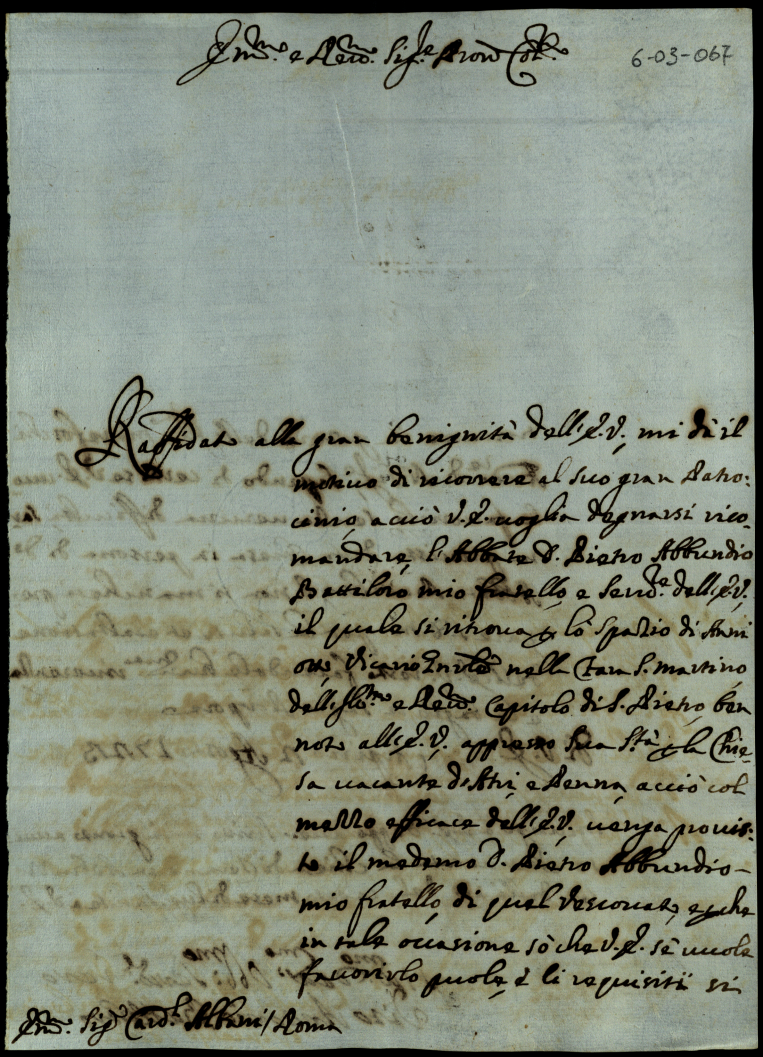 Em.mo e Rev.mo Sig.re Pron Col.mo
6-03-067
Raffidato alla gran benignità dell'E.V., mi dà il
motivo di ricorrere al suo gran Patro:
cinio, acciò V.E. voglia degnarsi rico:
mandare, l'Abbate D. Pietro Abbundio
Battiloro mio fratello, e Serv.re dell'E.V.,
il quale si ritrova p lo spazio di Anni
otto Vicario nella Terra S. Martino,
dell'Ill.mo e Rev.mo Capitolo di S. Pietro ben
noto all'E.V. appresso Sua S.tà p la Chie:
sa vacante d'Atri e Penna, acciò col
mezzo efficace dell'E.V. venga provis:
to il medemo D. Pietro Abbundio
mio fratello, di quel Vescovato, e p che
in tale occasione sò che V.E. se vuole
favorirlo puole, è li requisiti si
Em.mo Sig.r Card.l Albani / Roma